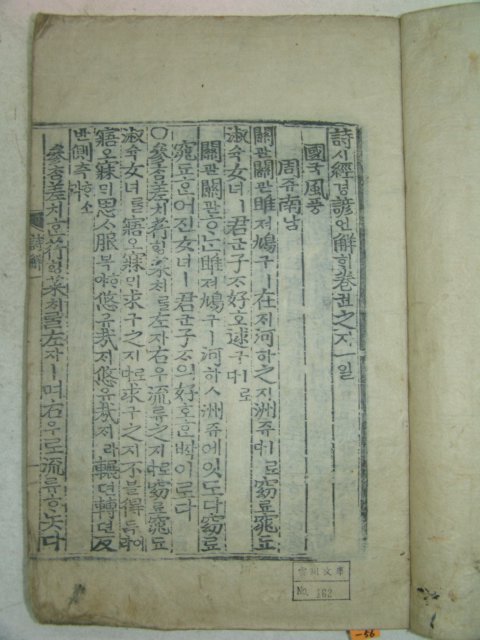 詩시經경諺언解ᄒᆡ卷권之지一일
國국風풍
周쥬南남
關관關관雎져鳩구ㅣ在ᄌᆡ河하之지洲쥬ㅣ로다窈요窕됴
淑슉女녀ㅣ君군子ᄌᆞ好호逑구ㅣ로다
關관關관ᄒᆞᄂᆞᆫ雎져鳩구ㅣ河하ㅅ洲쥬에잇도다窈요
窕됴ᄒᆞᆫ어진女녀ㅣ君군子ᄌᆞ의好호ᄒᆞᆫᄧᅡᆨ이로다
○參ᄎᆞᆷ差치荇ᄒᆡᆼ菜ᄎᆡ를左자右우流류之지로다窈요窕됴
淑슉女녀를寤오寐ᄆᆡ求구之지로다求구之지不블得득이라
寤오寐ᄆᆡ思ᄉᆞ服복ᄒᆞ야悠유哉ᄌᆡ悠유哉ᄌᆡ라輾뎐轉뎐反
반側측ᄒᆞ소라
參ᄎᆞᆷ差치ᄒᆞᆫ荇ᄒᆡᆼ菜ᄎᆡ를左자ㅣ며右우로流류ᄒᆞ놋다
詩解 一
No. 162
-56